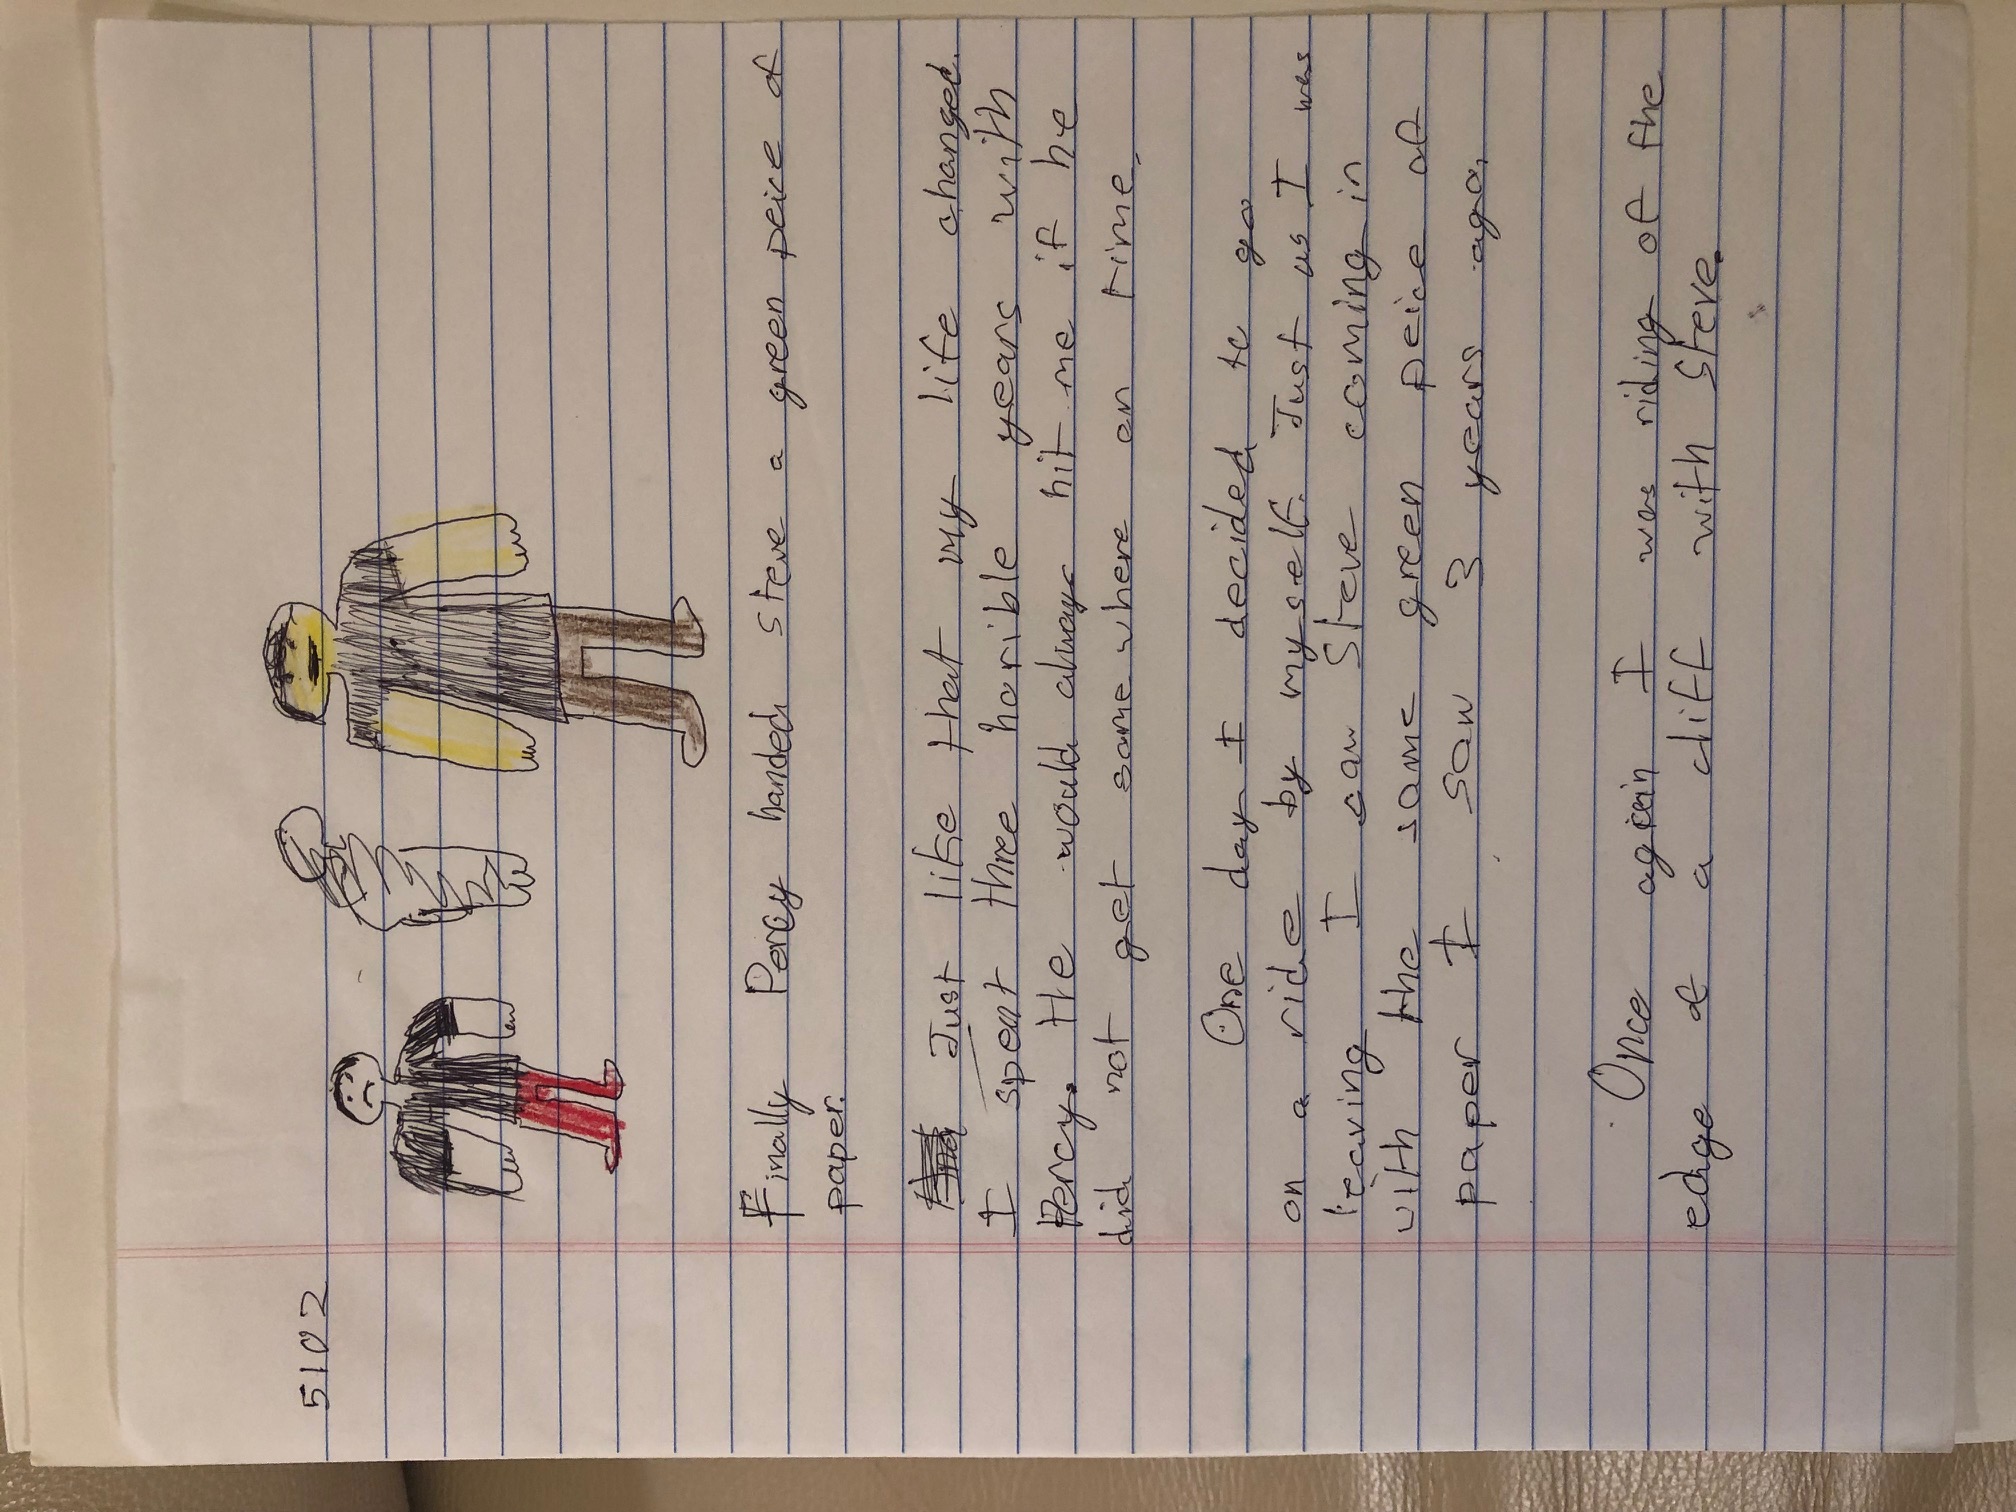 5102
Finally Percy handed Steve a green peice of
paper.
Just like that my life changed.
I spent three horible years with
Percy. He would always hit me if he
did not get some where on time.
One day I decided to go
on a ride by myself. Just as I was
leaving I saw Steve coming in
with the same green peice of
paper I saw 3 years ago.
Once again I was riding of the
edge of a cliff with Steve.